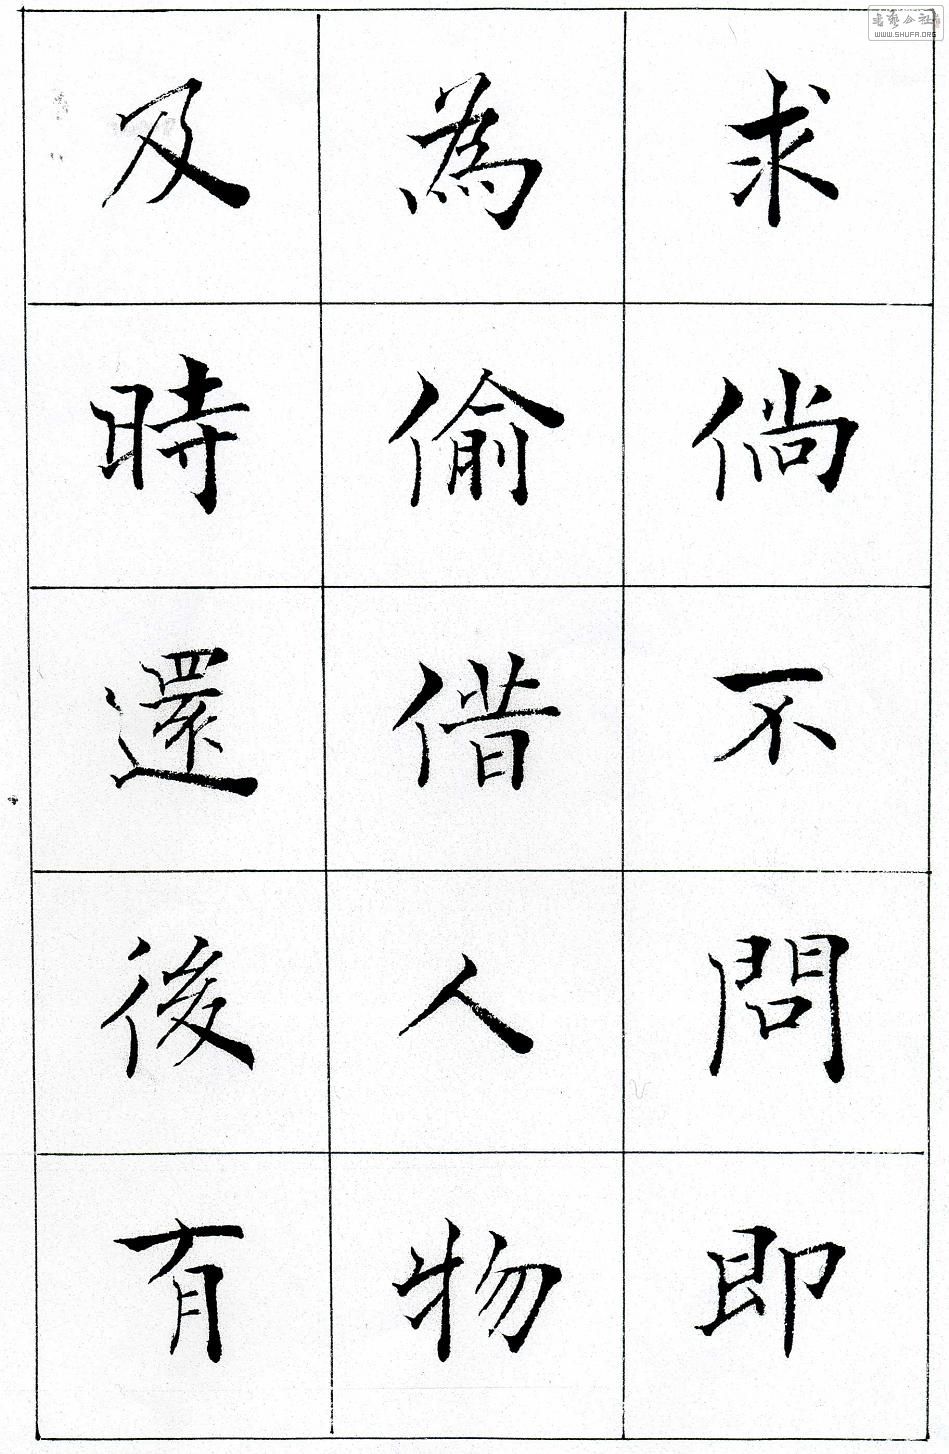 求倘不問即
為偷借人物
及時還後有
WWW.SHUFA.ORG